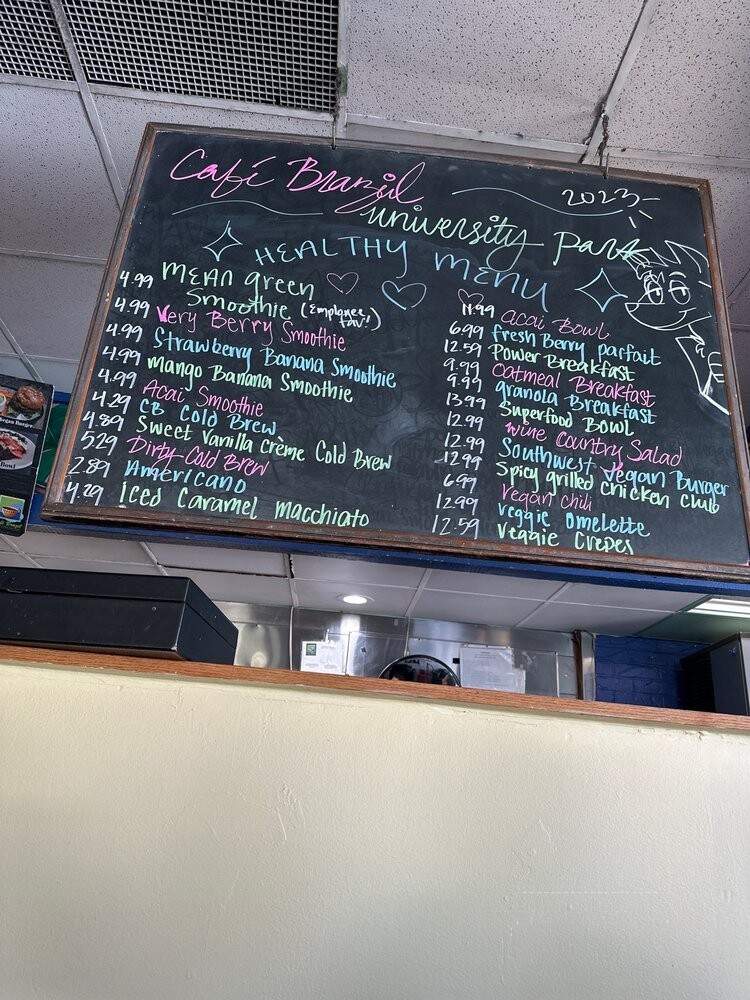 Café Brazil
2023
university Park
HEALTHY MENU
4.99 MEAN green
Smoothie (Employee fav!)
4.99 Very Berry Smoothie
4.99 Strawberry Banana Smoothie
4.99 mango Banana Smoothie
4.99 Acai Smoothie
4.29 CB Cold Brew
4.89 Sweet Vanilla Crème Cold Brew
5.29 Dirty Cold Brew
2.89 Americano
4.29 iced Caramel macchiato
11.99 acai Bowl
6.99 fresh Berry parfait
12.59 Power Breakfast
9.99 Oatmeal Breakfast
9.99 granola Breakfast
13.99 Superfood Bowl
12.99 Wine Country Salad
12.99 Southwest Vegan Burger
12.99 Spicy grilled Chicken Club
6.99 Vegan Chili
12.99 veggie omelette
12.59 veggie Crepes